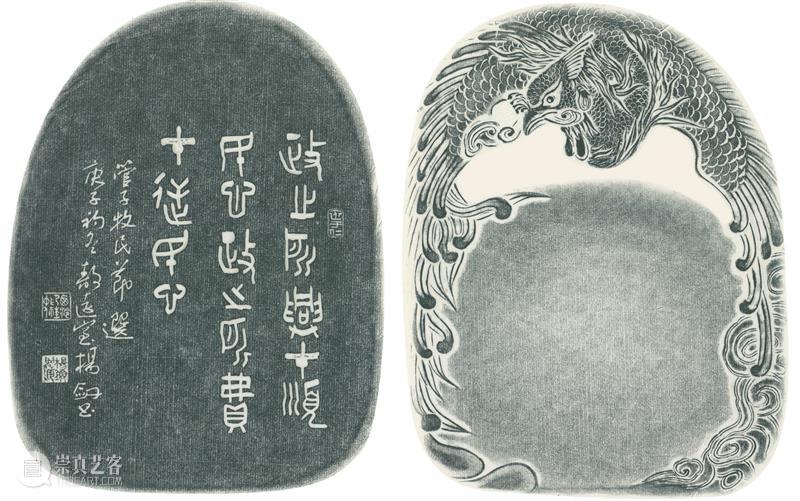 政之所興在順
民心政之所費
在逆民心
管子牧民節選
庚子初冬遠堂楊劍書
崇真艺客